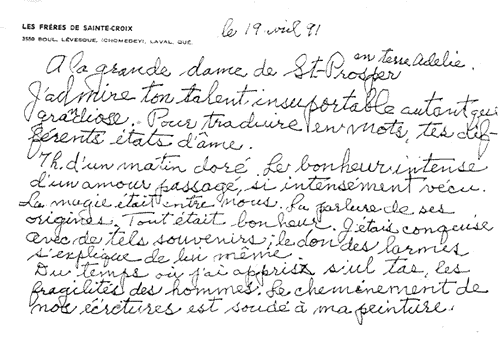 LES FRÈRES DE SAINTE-CROIX
le 19 avril 91
3550 BOUL. LÉVESQUE, (CHOMEDEY), LAVAL, QUÉ.
en terre Adélie.
A la grande dame de St-Prosper
J'admire ton talent insuportable autant que
grandiose. Pour traduire en mots, tes dif-
férents états d'âme.
Th. d'un matin doré. Le bonheur intense
d'un amour passagé, si intensement vécu.
La magie était entre nous. La parlure de ses
origines. Tout était bonheur. J'étais
avec de tels souvenirs; le don des larmes
s'explique de lui même.
Du temps où j'ai appris
fragilités des hommes. Le cheminement de
nos écritures est soudé à ma peinture.